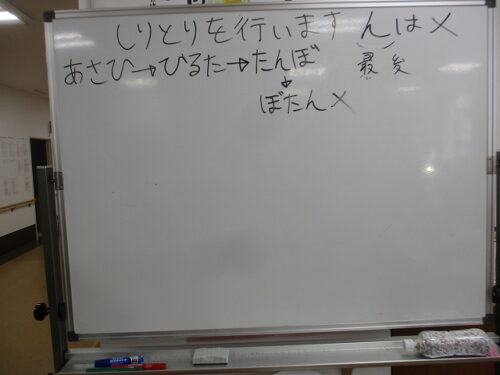 しりとりを行います んは×
最後
あさひ→ひるた→たんぼ
↓
ぼたん×